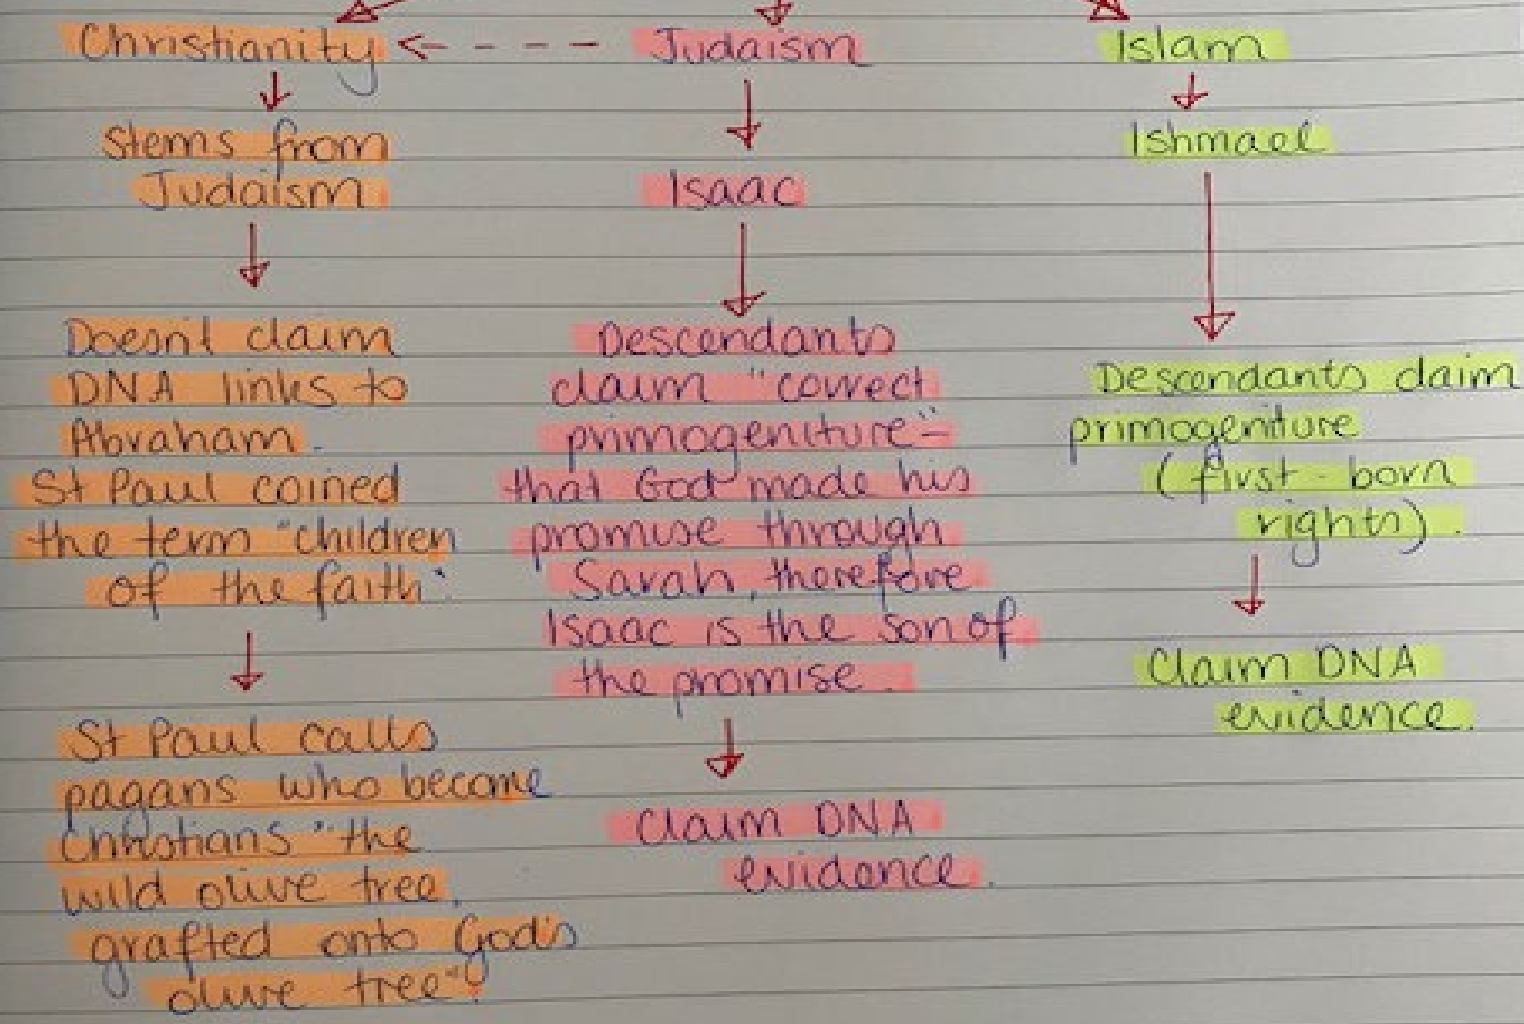 Christianity
Stems from
Judaism
Doesn't claim
DNA links to
Abraham.
St Paul coined
the term "children
of the faith".
St Paul calls
pagans who become
Christians "the
wild olive tree,
grafted onto God's
olive tree".
Judaism
Isaac
Descendants
claim "correct
primogeniture" -
that God made his
promise through
Sarah, therefore
Isaac is the son of
the promise.
Claim DNA
evidence.
Islam
Ishmael
Descendants claim
primogeniture
(first-born
rights).
Claim DNA
evidence.